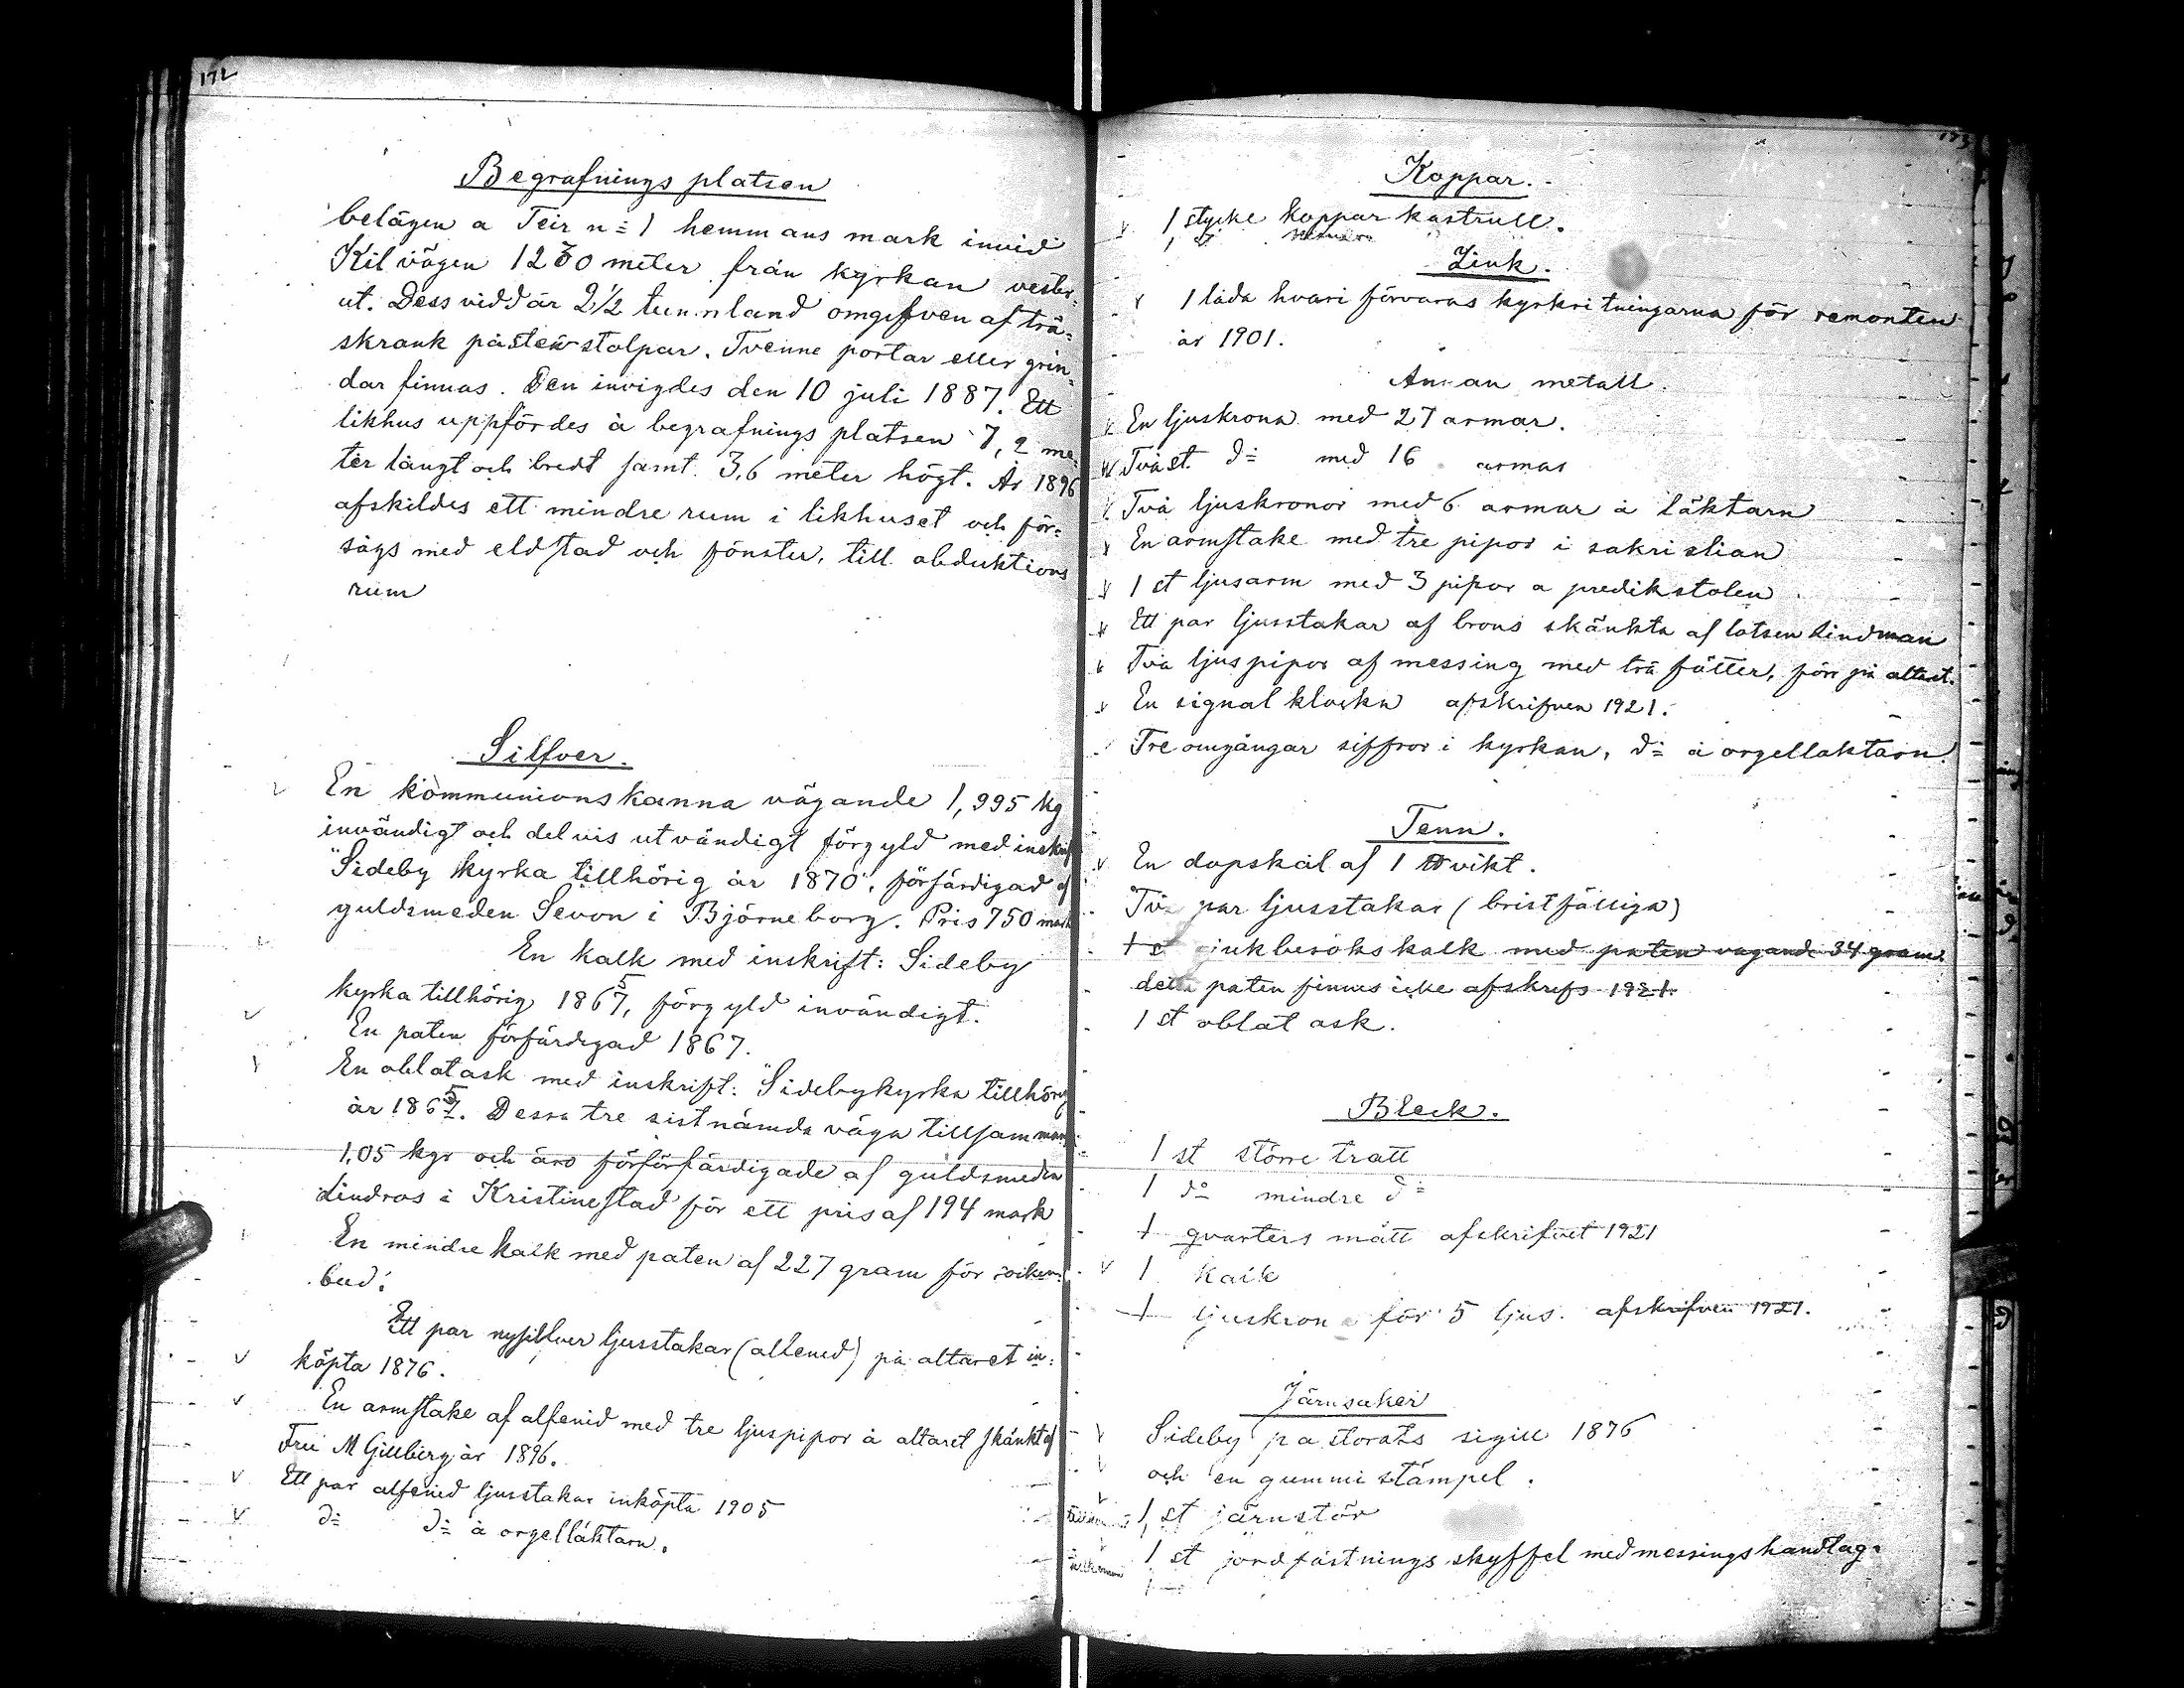 172
Begrafnings platsen
belägen a Teir n= 1 hemmans mark invid
Kil vägen 1230 meter från kyrkan vester=
ut. Dess vidd är 2 1/2 tunnland omgifven af trä=
skrank på sten stolpar. Tvenne portar eller grin=
dar finnas. Den invigdes den 10 juli 1887. Ett
likhus uppfördes å begrafnings platsen 7,2 me=
ter långt och bredt samt 3,6 meter högt. År 1896
afskildes ett mindre rum i likhuset och för=
sågs med eldstad och fönster, till abduktions
rum
Silfver.
En kommunionskanna vägande 1,995 kg
invändigt och delvis utvändigt förgyld med inskrif
"Sideby kyrka tillhörig år 1870", förfärdigad af
guldsmeden Sevon i Björneborg. Pris 750 mark
En kalk med inskrift: Sideby
5
kyrka tillhörig 1867, förgyld invändigt.
En paten förfärdigad 1867.
En oblatask med inskrift: "Sidebykyrka tillhörig
5
år 1867. Dessa tre sistnämda väga tillsamman
1,05 kgr och äro förförfärdigade af guldsmeden
Lindroos i Kristinestad för ett pris af 194 mark
En mindre kalk med paten af 227 gram för
bud.
Ett par nysilfver ljusstakar (alfenid) på altaret in=
köpta 1876.
En armstake af alfenid med tre ljuspipor å altaret skänkt af
Fru M Gillberg år 1896.
Ett par alfenid ljusstakar inköpta 1905
d= d= å orgelläktarn.
173
Koppar.
1 stycke koppar kastrull.
1 d=
Zink.
1 låda hvari förvaras kyrkritningarna för remonten
år 1901.
Annan metall.
En ljuskrona med 27 armar.
Två st. d= med 16 armar
Två ljuskronor med 6 armar å läktarn
En armstake med tre pipor i sakristian
1 st ljusarm med 3 pipor a predikstolen
Ett par ljusstakar af brons skänkta af lotsen Lindman
Två ljuspipor af messing med trä fötter, förr på altaret.
En signal klocka afskrifven 1921.
Tre omgångar siffror i kyrkan, d= å orgellaktarn.
Tenn.
En dopskål af 1 ℔ vikt.
Två par ljusstakar (bristfälliga)
1 st sjukbesökskalk med paten vagande 34 gram.
detta paten finnes icke afskrifs 1921.
1 st oblat ask.
Bleck.
1 st större tratt
1 do mindre d=
1 qvarters mått afskrifvet 1921
1 Kalk
1 ljuskrona för 5 ljus. afskrifven 1921.
Järnsaker
Sideby pastorats sigill 1876
och en gummi stämpel.
1 st järnstör
1 st jordfästnings skyffel med messings handtag.